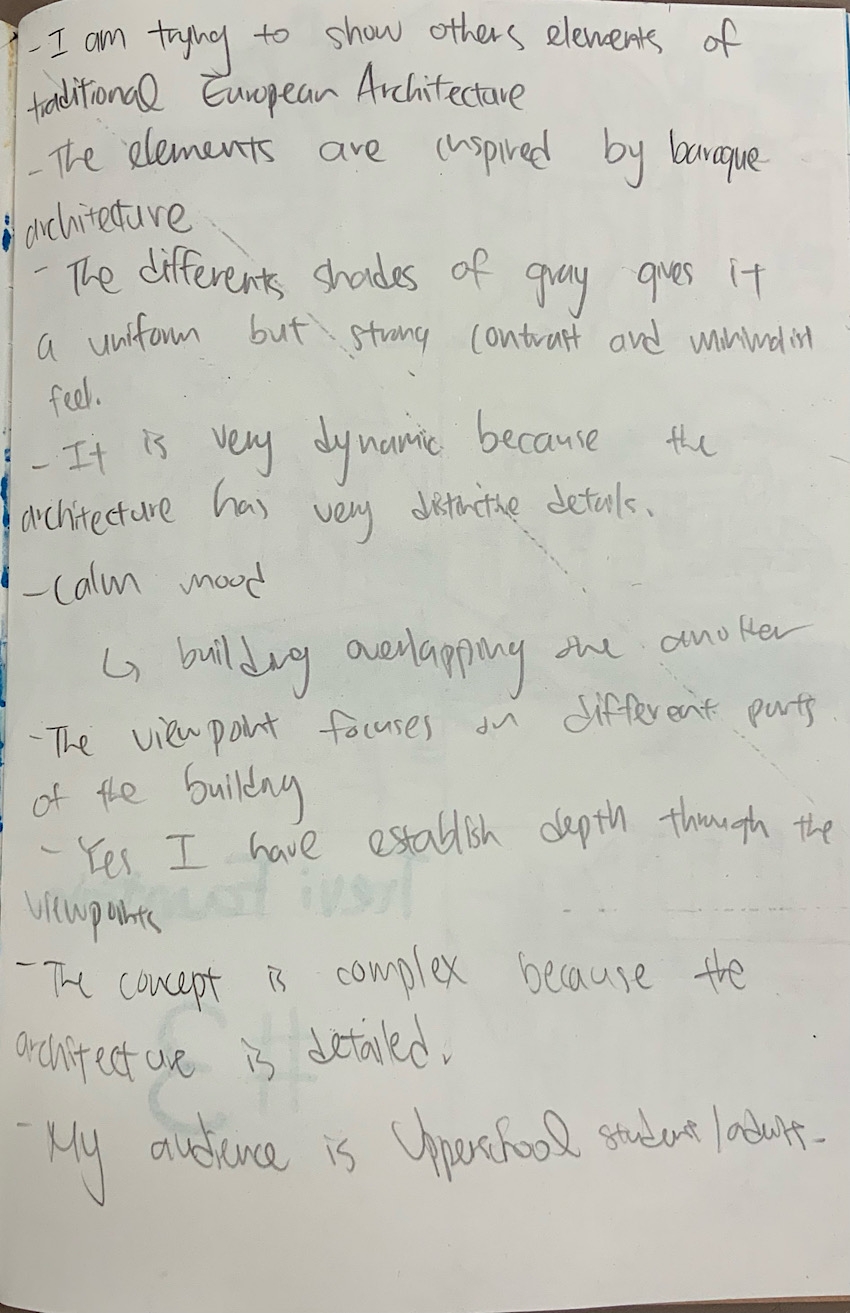 - I am trying to show others elements of
traditional European Architecture
- The elements are inspired by baroque
architecture
- The differents shades of gray gives it
a uniform but strong contrast and minimalist
feel.
- It is very dynamic because the
architecture has very distinctive details.
- Calm mood
↳ building overlapping one another
- The viewpoint focuses on different parts
of the building
- Yes I have establish depth through the
viewpoints
- The concept is complex because the
architecture is detailed.
- My audience is Upperschool student/adult.
Trevi Fountain
#3